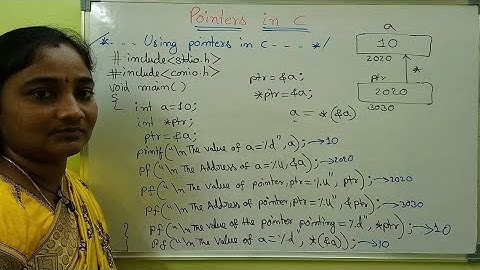 Pointers in C
/*--- Using pointers in C ---*/
#include<stdio.h>
#include<conio.h>
void main()
{
int a=10;
int *ptr;
ptr=&a;
printf("\n The value of a=%d", a); →10
pf("\n The Address of a=%u, &a); →2020
pf("\n The value of pointer, ptr=%u", ptr); →2020
pf("\n The Address of pointer, ptr=%u", &ptr); →3030
pf("\n The value of the pointer pointing=%d", *ptr); →10
pf("\n The value of a=%d", *(&a)); →10
}
ptr=&a;
*ptr=&a;
a=*(&a)
a
10
2020
*
ptr
2020
3030